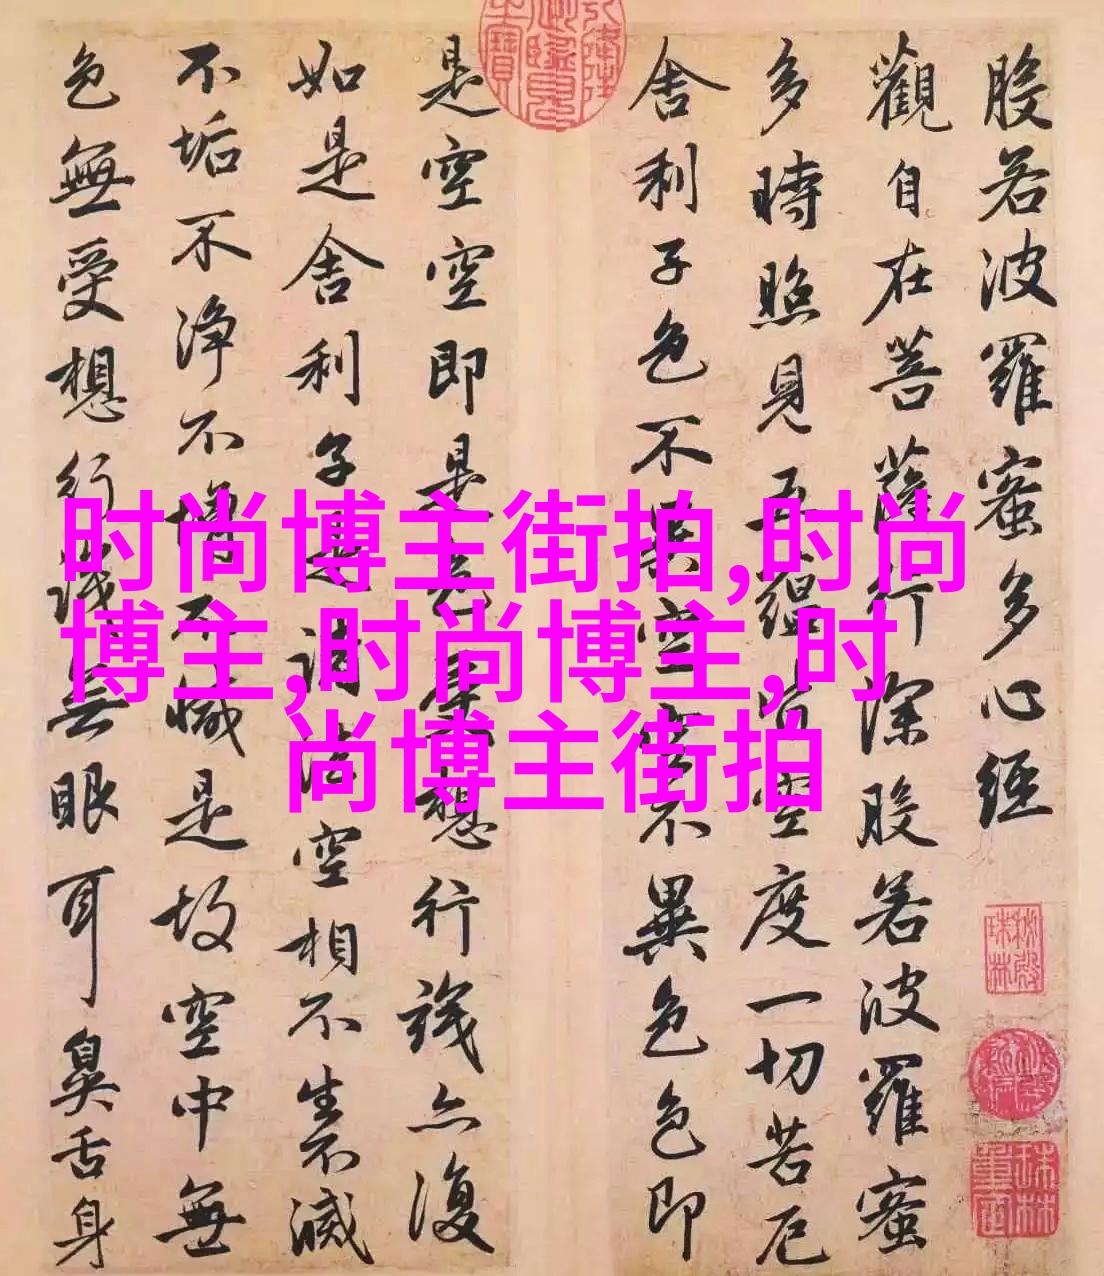 般若波羅蜜多心經
觀自在菩薩行深般若波羅蜜
多時照見五蘊皆空度一切苦厄
舍利子色不異空空不異色色即
是空空即是色受想行識亦復
如是舍利子是諸法空相不生不滅
不垢不净不增不減是故空中無
色無受想行識無眼耳鼻舌身
时尚博主街拍,时尚
博主,时尚博主,时
尚博主街拍